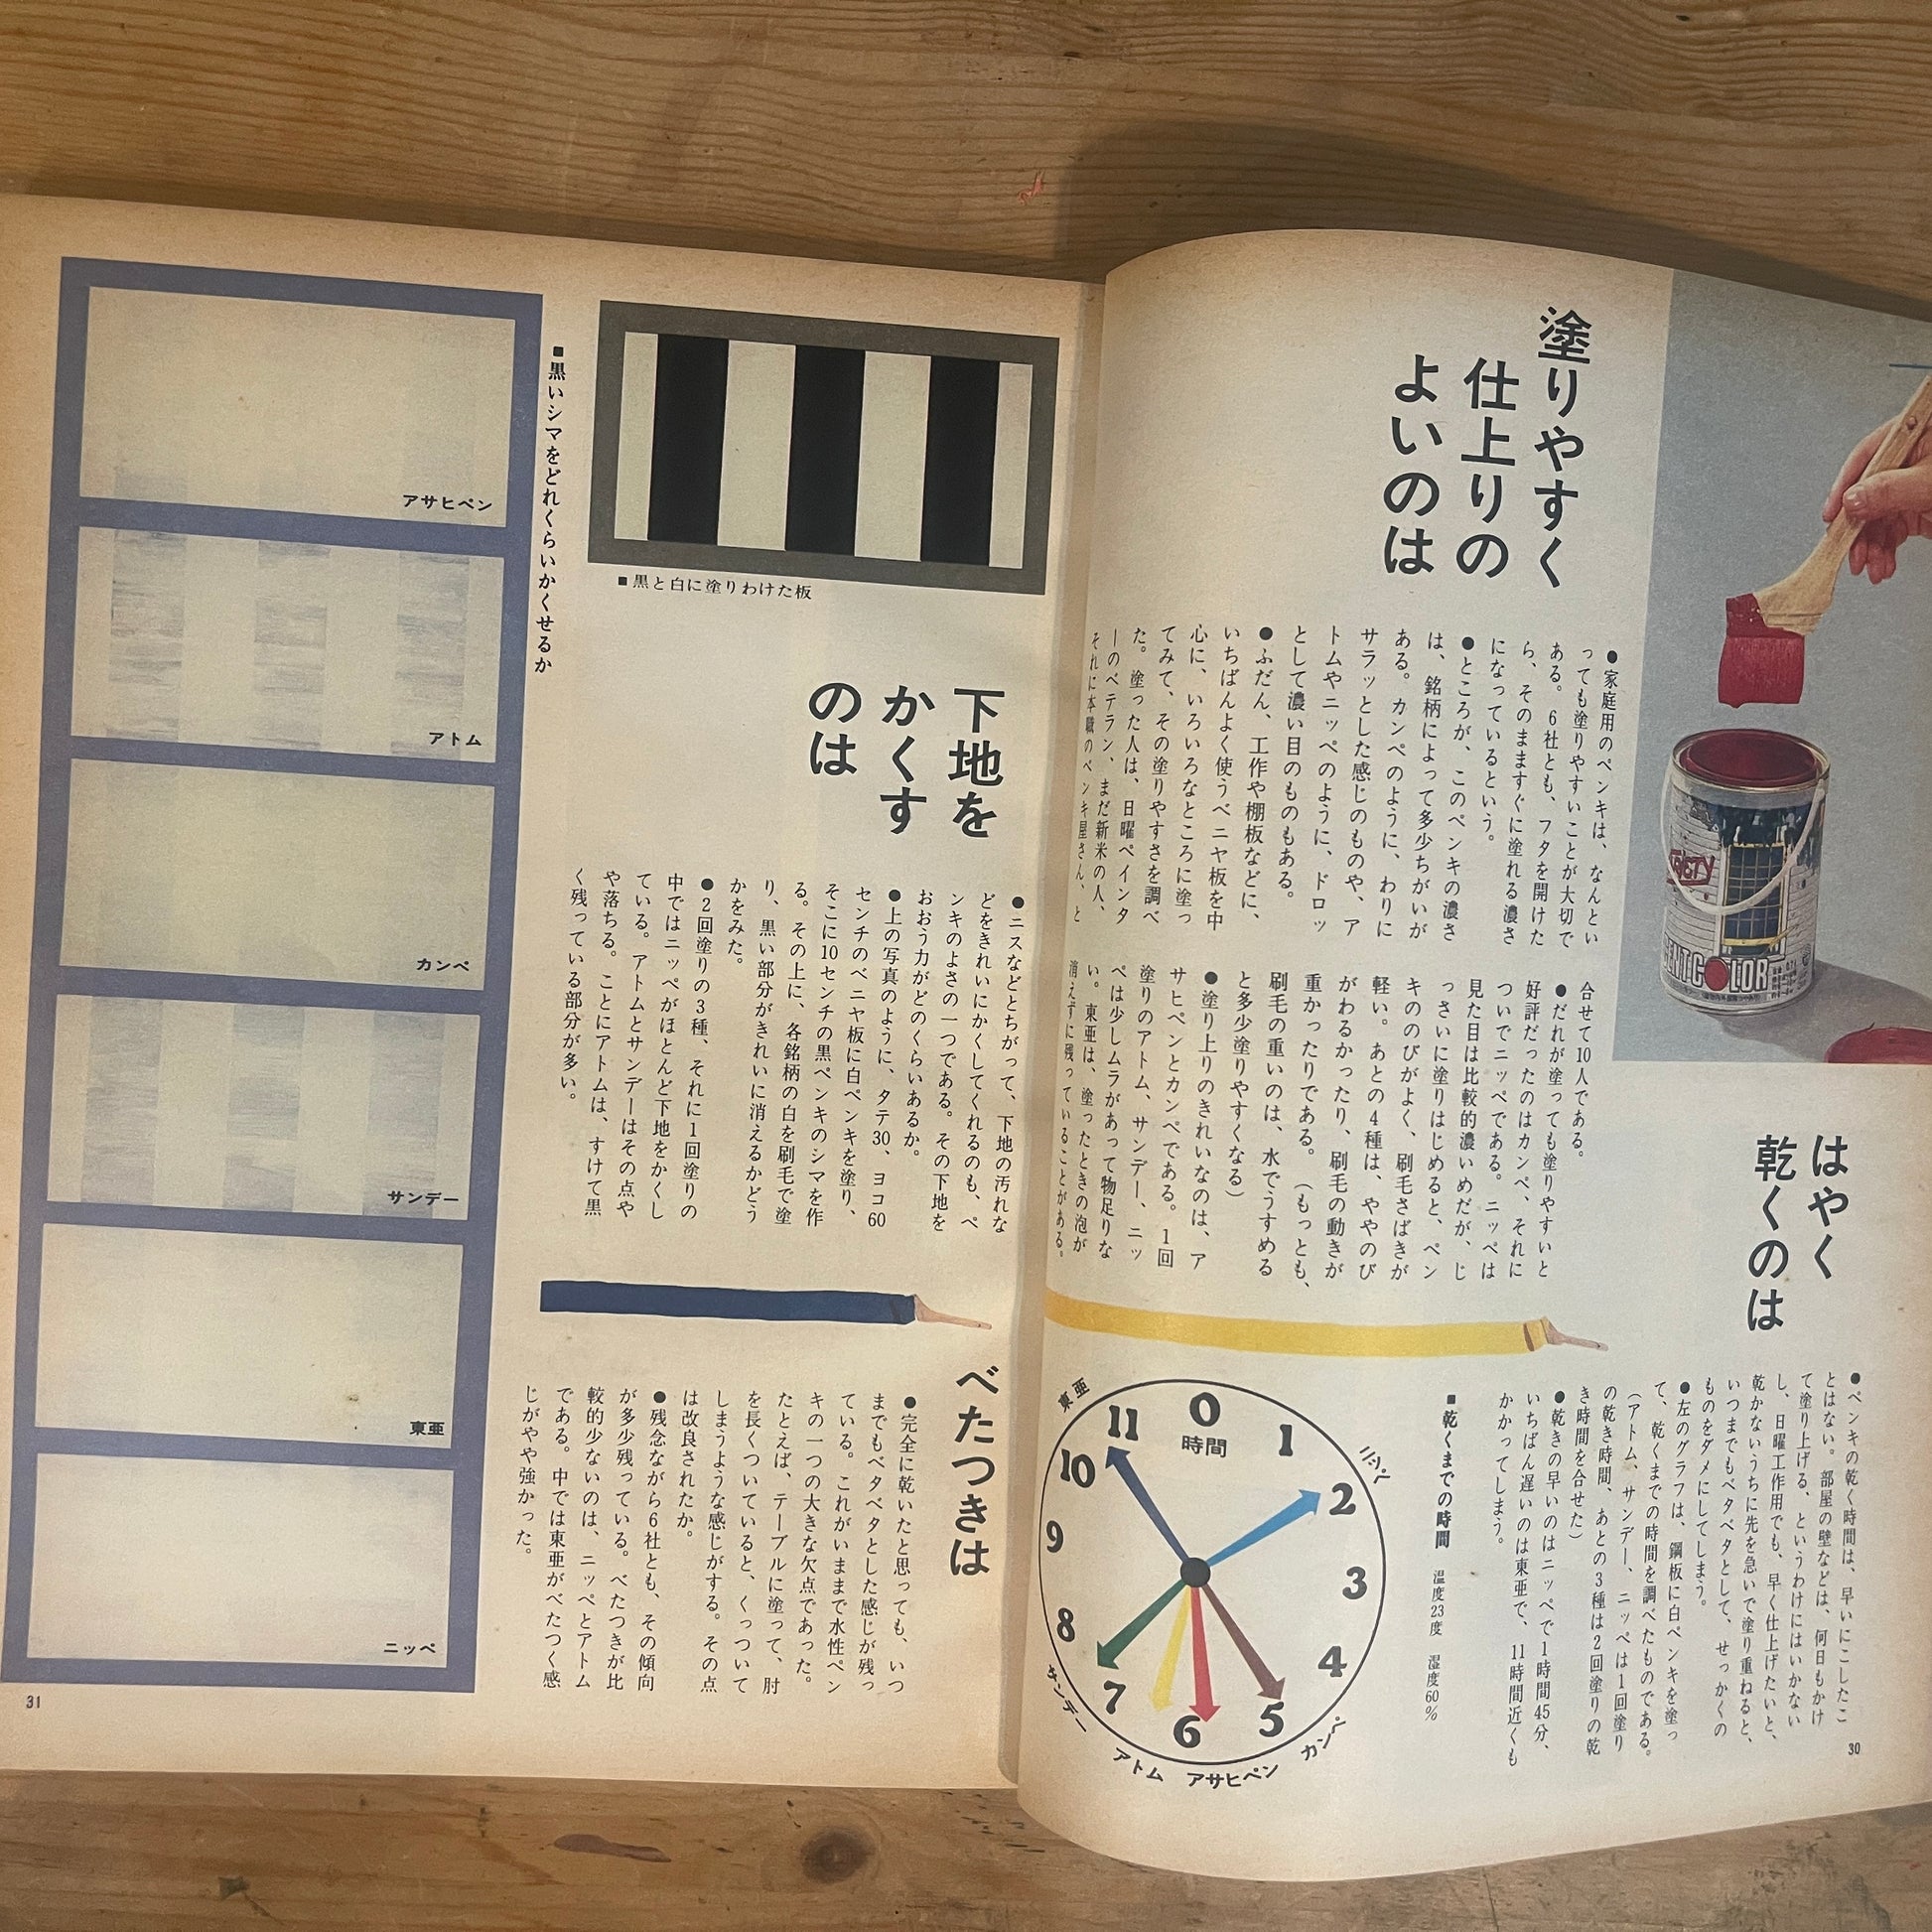 塗りやすく
仕上りの
よいのは
●家庭用のペンキは、なんとい
っても塗りやすいことが大切で
ある。6社とも、フタを開けた
ら、そのまますぐに塗れる濃さ
になっているという。
●ところが、このペンキの濃さ
は、銘柄によって多少ちがいが
ある。カンペのように、わりに
サラッとした感じのものや、ア
トムやニッペのように、ドロッ
として濃い目のものもある。
●ふだん、工作や棚板などに、
いちばんよく使うベニヤ板を中
心に、いろいろなところに塗っ
てみて、その塗りやすさを調べ
た。塗った人は、日曜ペインタ
ーのベテラン、まだ新米の人、
それに本職のペンキ屋さん、と
合せて10人である。
●だれが塗っても塗りやすいと
好評だったのはカンペ、それに
ついでニッペである。ニッペは
見た目は比較的濃いめだが、じ
っさいに塗りはじめると、ペン
キののびがよく、刷毛さばきが
軽い。あとの4種は、ややのび
がわるかったり、刷毛の動きが
重かったりである。(もっとも、
刷毛の重いのは、水でうすめる
と多少塗りやすくなる)
●塗り上りのきれいなのは、ア
サヒペンとカンペである。1回
塗りのアトム、サンデー、ニッ
ペは少しムラがあって物足りな
い。東亜は、塗ったときの泡が
消えずに残っていることがある。
CENTCOLOR
はやく
乾くのは
●ペンキの乾く時間は、早いにこしたこ
とはない。部屋の壁などは、何日もかけ
て塗り上げる、というわけにはいかない
し、日曜工作用でも、早く仕上げたいと、
乾かないうちに先を急いで塗り重ねると、
いつまでもベタベタとして、せっかくの
ものをダメにしてしまう。
●左のグラフは、鋼板に白ペンキを塗っ
て、乾くまでの時間を調べたものである。
(アトム、サンデー、ニッペは1回塗り
の乾き時間、あとの3種は2回塗りの乾
き時間を合せた)
●乾きの早いのはニッペで1時間45分、
いちばん遅いのは東亜で、11時間近くも
かかってしまう。
■乾くまでの時間 温度23度 湿度60%
0
時間
1
2
3
4
5
6
7
8
9
10
11
ニッペ
カンペ
アサヒペン
アトム
サンデー
東亜
30
■黒と白に塗りわけた板
下地を
かくす
のは
●ニスなどとちがって、下地の汚れな
どをきれいにかくしてくれるのも、ペ
ンキのよさの一つである。その下地を
おおう力がどのくらいあるか。
●上の写真のように、タテ30、ヨコ60
センチのベニヤ板に白ペンキを塗り、
そこに10センチの黒ペンキのシマを作
る。その上に、各銘柄の白を刷毛で塗
り、黒い部分がきれいに消えるかどう
かをみた。
●2回塗りの3種、それに1回塗りの
中ではニッペがほとんど下地をかくし
ている。アトムとサンデーはその点や
や落ちる。ことにアトムは、すけて黒
く残っている部分が多い。
べたつきは
●完全に乾いたと思っても、いつ
までもベタベタとした感じが残っ
ている。これがいままで水性ペン
キの一つの大きな欠点であった。
たとえば、テーブルに塗って、肘
を長くついていると、くっついて
しまうような感じがする。その点
は改良されたか。
●残念ながら6社とも、その傾向
が多少残っている。べたつきが比
較的少ないのは、ニッペとアトム
である。中では東亜がべたつく感
じがやや強かった。
■黒いシマをどれくらいかくせるか
アサヒペン
アトム
カンペ
サンデー
東亜
ニッペ
31